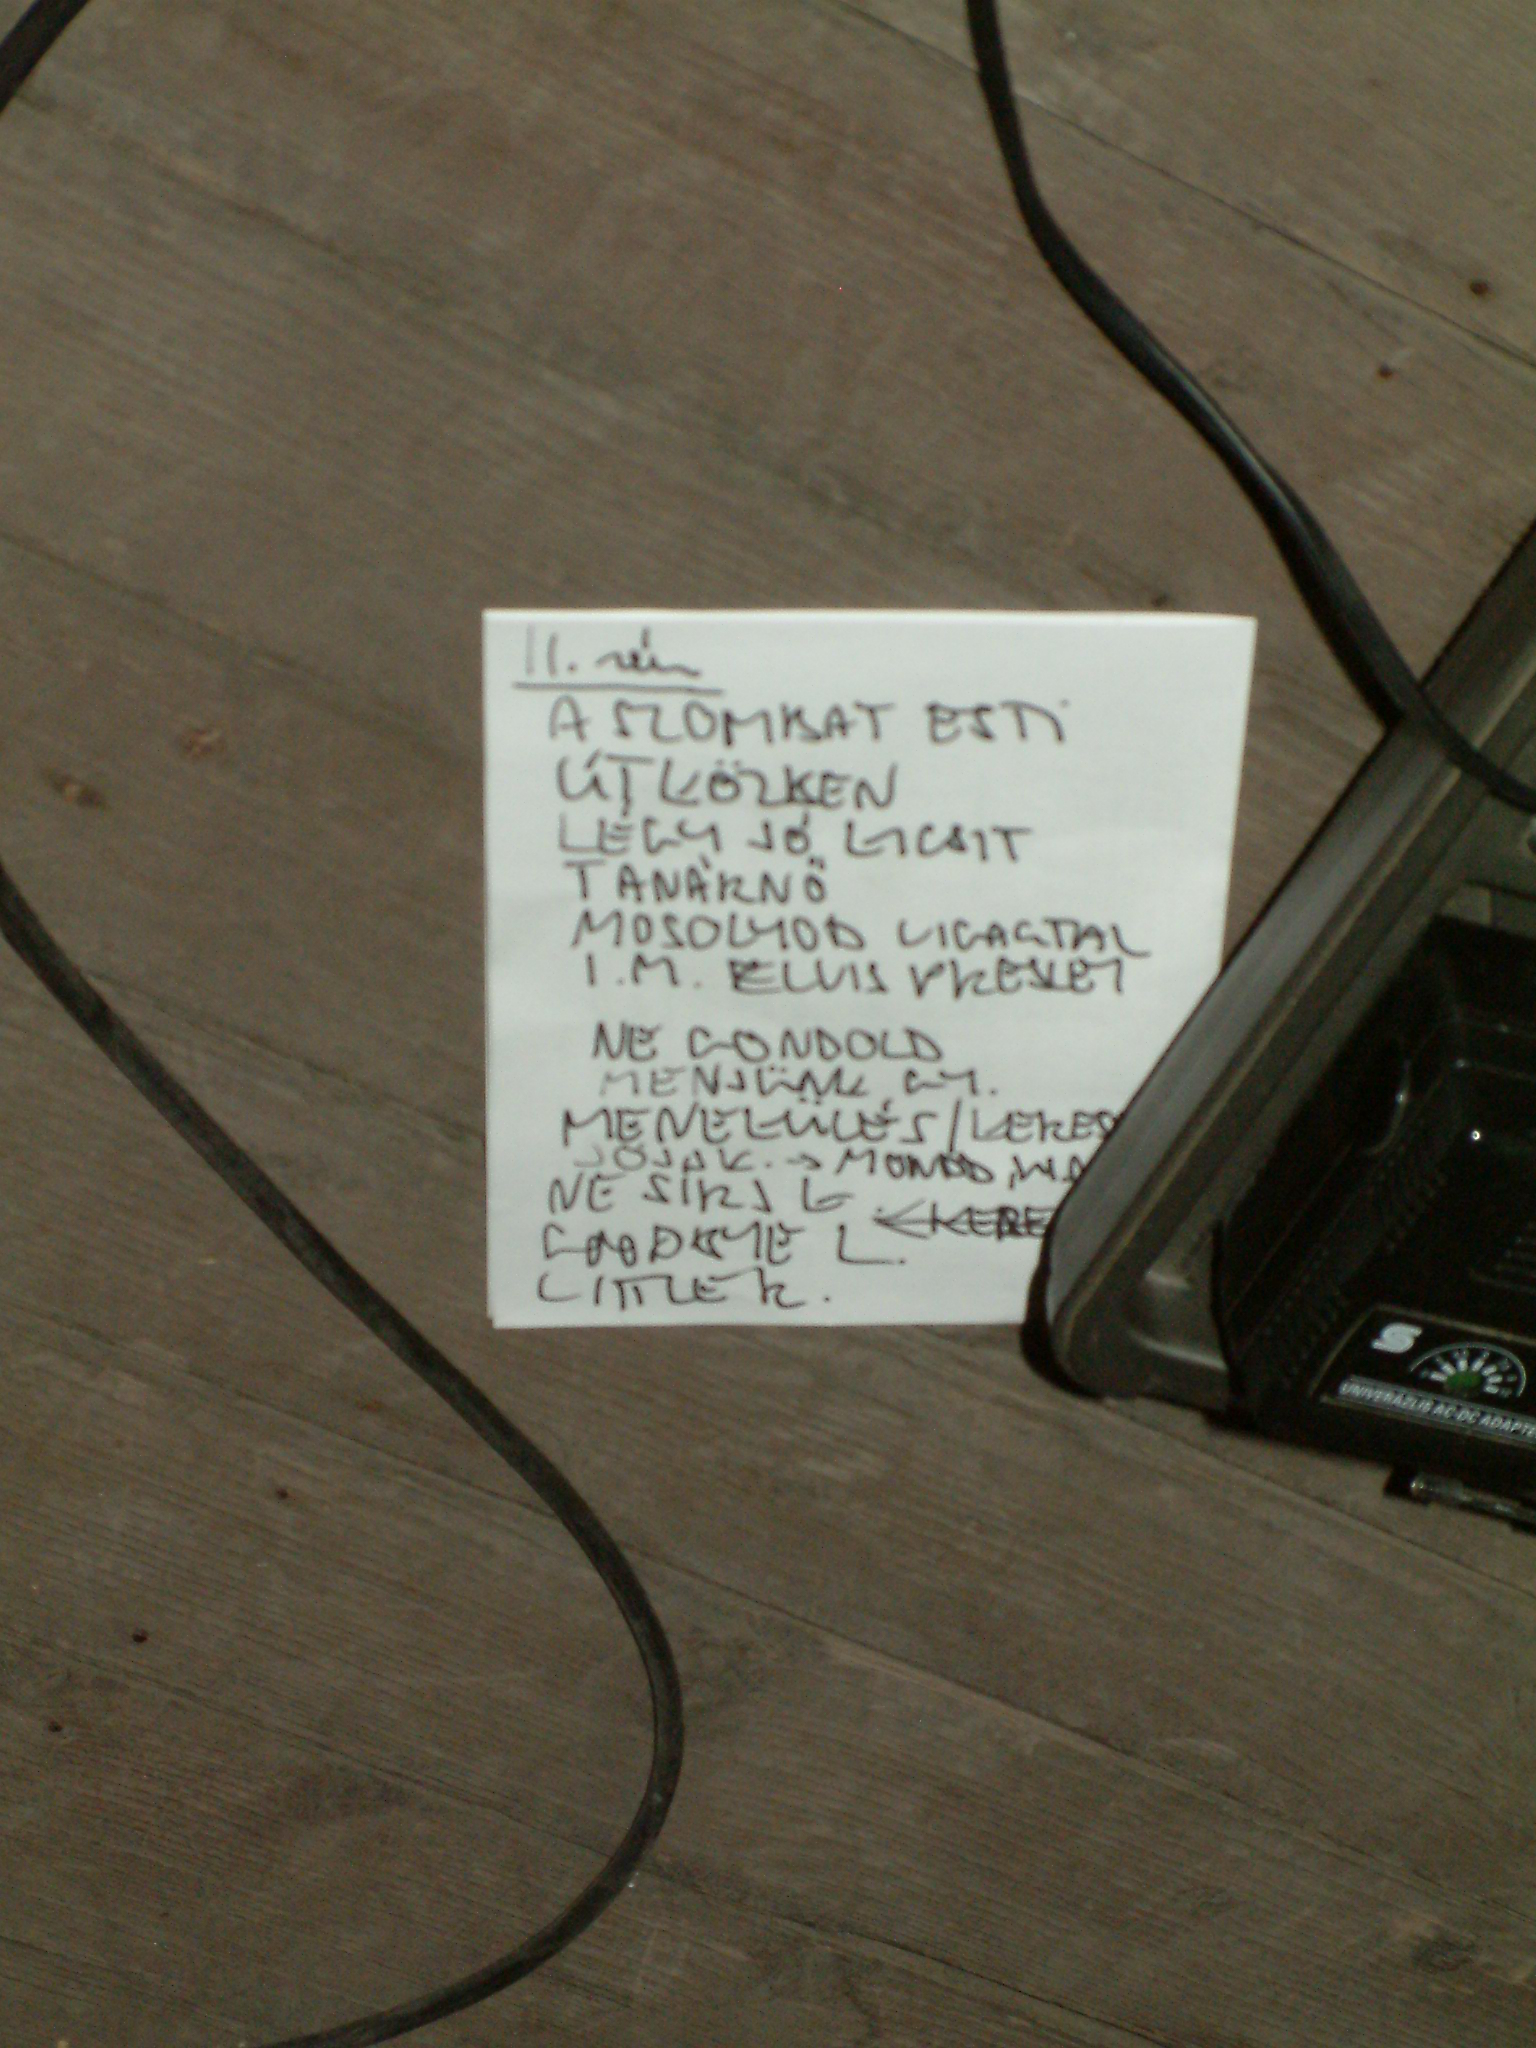 II. rész
A SZOMBAT ESTI
ÚTKÖZBEN
LÉGY JÓ KICSIT
TANÁRNŐ
MOSOLYOD VIGASZTAL
I.M. ELVIS PRESLEY
NE GONDOLD
MENJÜNK GY.
MENEKÜLÉS/KERES
JÓSÁK. → MONDD, 
NE SÍRJ L
GOODBYE L. ←KERE
LITTLE R.
S
UNIVERZÁLIS AC-DC ADAPTE